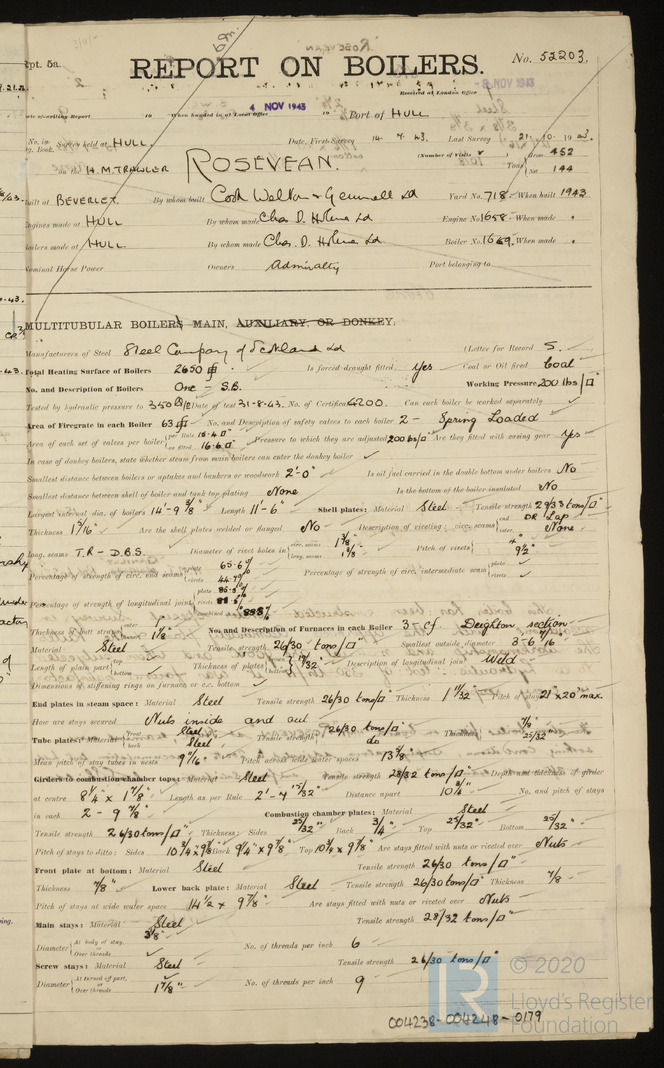 Rpt. 5a.
REPORT ON BOILERS.
No. 52203.
Received at London Office
NOV 1943
Date of writing Report 19 When handed in at Local Office 4 NOV 1943 19 Port of HULL
No. in Reg. Book. Survey held at HULL. Date, First Survey 14.7.43. Last Survey 21-10-1943.
on the H.M. TRAWLER ROSEVEAN. (Number of Visits ) Tons Gross 452 Net 144
Built at BEVERLEY. By whom built Cook Welton & Gemmell Ld Yard No. 718. When built 1943
Engines made at HULL By whom made Chas. D. Holmes Ld Engine No. 1658. When made "
Boilers made at HULL By whom made Chas. D. Holmes Ld. Boiler No. 1669. When made "
Nominal Horse Power Owners Admiralty Port belonging to
MULTITUBULAR BOILERS MAIN, AUXILIARY, OR DONKEY.
Manufacturers of Steel Steel Company of Scotland Ld (Letter for Record S.
Total Heating Surface of Boilers 2650 Is forced draught fitted Yes Coal or Oil fired Coal
No. and Description of Boilers One - S.B. Working Pressure 200 lbs/□"
Tested by hydraulic pressure to 350 Date of test 31-8-43. No. of Certificate 4200. Can each boiler be worked separately
Area of Firegrate in each Boiler 63 No. and Description of safety valves to each boiler 2 - Spring Loaded
Area of each set of valves per boiler per Rule 15.4 □" as fitted 16.6 □" Pressure to which they are adjusted 200 lbs/□" Are they fitted with easing gear Yes
In case of donkey boilers, state whether steam from main boilers can enter the donkey boiler
Smallest distance between boilers or uptakes and bunkers or woodwork 2'-0" Is oil fuel carried in the double bottom under boilers No
Smallest distance between shell of boiler and tank top plating None Is the bottom of the boiler insulated No
Largest internal dia. of boilers 14'-9 3/8" Length 11'-6" Shell plates: Material Steel Tensile strength 29/33 tons/□"
Thickness 1 5/16" Are the shell plates welded or flanged No Description of riveting: circ. seams end DR Lap inter. None
long. seams T.R - D.B.S. Diameter of rivet holes in circ. seams 1 3/8" long. seams 1 3/8" Pitch of rivets 4" 9 1/2"
Percentage of strength of circ. end seams plate 65.6% rivets 44.7% Percentage of strength of circ. intermediate seam plate rivets
Percentage of strength of longitudinal joint plate 85.5% rivets combined
Thickness of butt straps outer inner 1 1/8" No. and Description of Furnaces in each Boiler 3 - cf Deighton section
Material Steel Tensile strength 26/30 tons/□" Smallest outside diameter 3-6 7/16"
Length of plain part top bottom Thickness of plates 19/32" Description of longitudinal joint Weld
Dimensions of stiffening rings on furnace or c.c. bottom
End plates in steam space: Material Steel Tensile strength 26/30 tons/□" Thickness 1 11/32" Pitch of stays 21" x 20" max.
How are stays secured Nuts inside and out
Tube plates: Material front Steel back Steel Tensile strength 26/30 tons/□" do Thickness 7/8" 25/32
Mean pitch of stay tubes in nests 9 11/16" Pitch across wide water spaces 13 5/8"
Girders to combustion chamber tops: Material Steel Tensile strength 28/32 tons/□" Depth and thickness of girder
at centre 8 1/4" x 1 7/8" Length as per Rule 2'-4 15/32" Distance apart 10 3/4" No. and pitch of stays
in each 2 - 9 7/8" Combustion chamber plates: Material Steel
Tensile strength 26/30 tons/□" Thickness: Sides 25/32" Back 3/4" Top 25/32" Bottom 25/32"
Pitch of stays to ditto: Sides 10 3/4 x 9 7/8 Back 9 1/4" x 9 7/8" Top 10 3/4 x 9 7/8" Are stays fitted with nuts or riveted over Nuts
Front plate at bottom: Material Steel Tensile strength 26/30 tons/□"
Thickness 7/8" Lower back plate: Material Steel Tensile strength 26/30 tons/□" Thickness 7/8"
Pitch of stays at wide water space 14 1/2 x 9 7/8" Are stays fitted with nuts or riveted over Nuts
Main stays: Material Steel Tensile strength 28/32 tons/□"
Diameter At body of stay, or Over threads 3 1/8" No. of threads per inch 6
Screw stays: Material Steel Tensile strength 26/30 tons/□"
Diameter At turned off part, or Over threads 1 7/8" No. of threads per inch 9
004238-004248-0179
© 2020
Lloyd's Register
Foundation